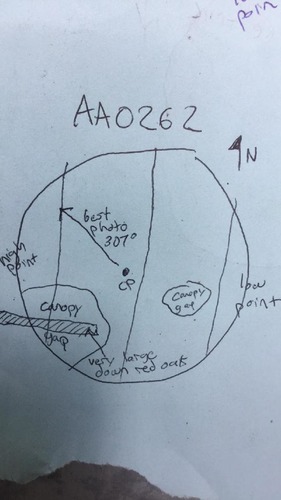 poin
AA0262
N
best
photo
307°
high
point
CP
canopy
gap
low
point
canopy
gap
very large
down red oak